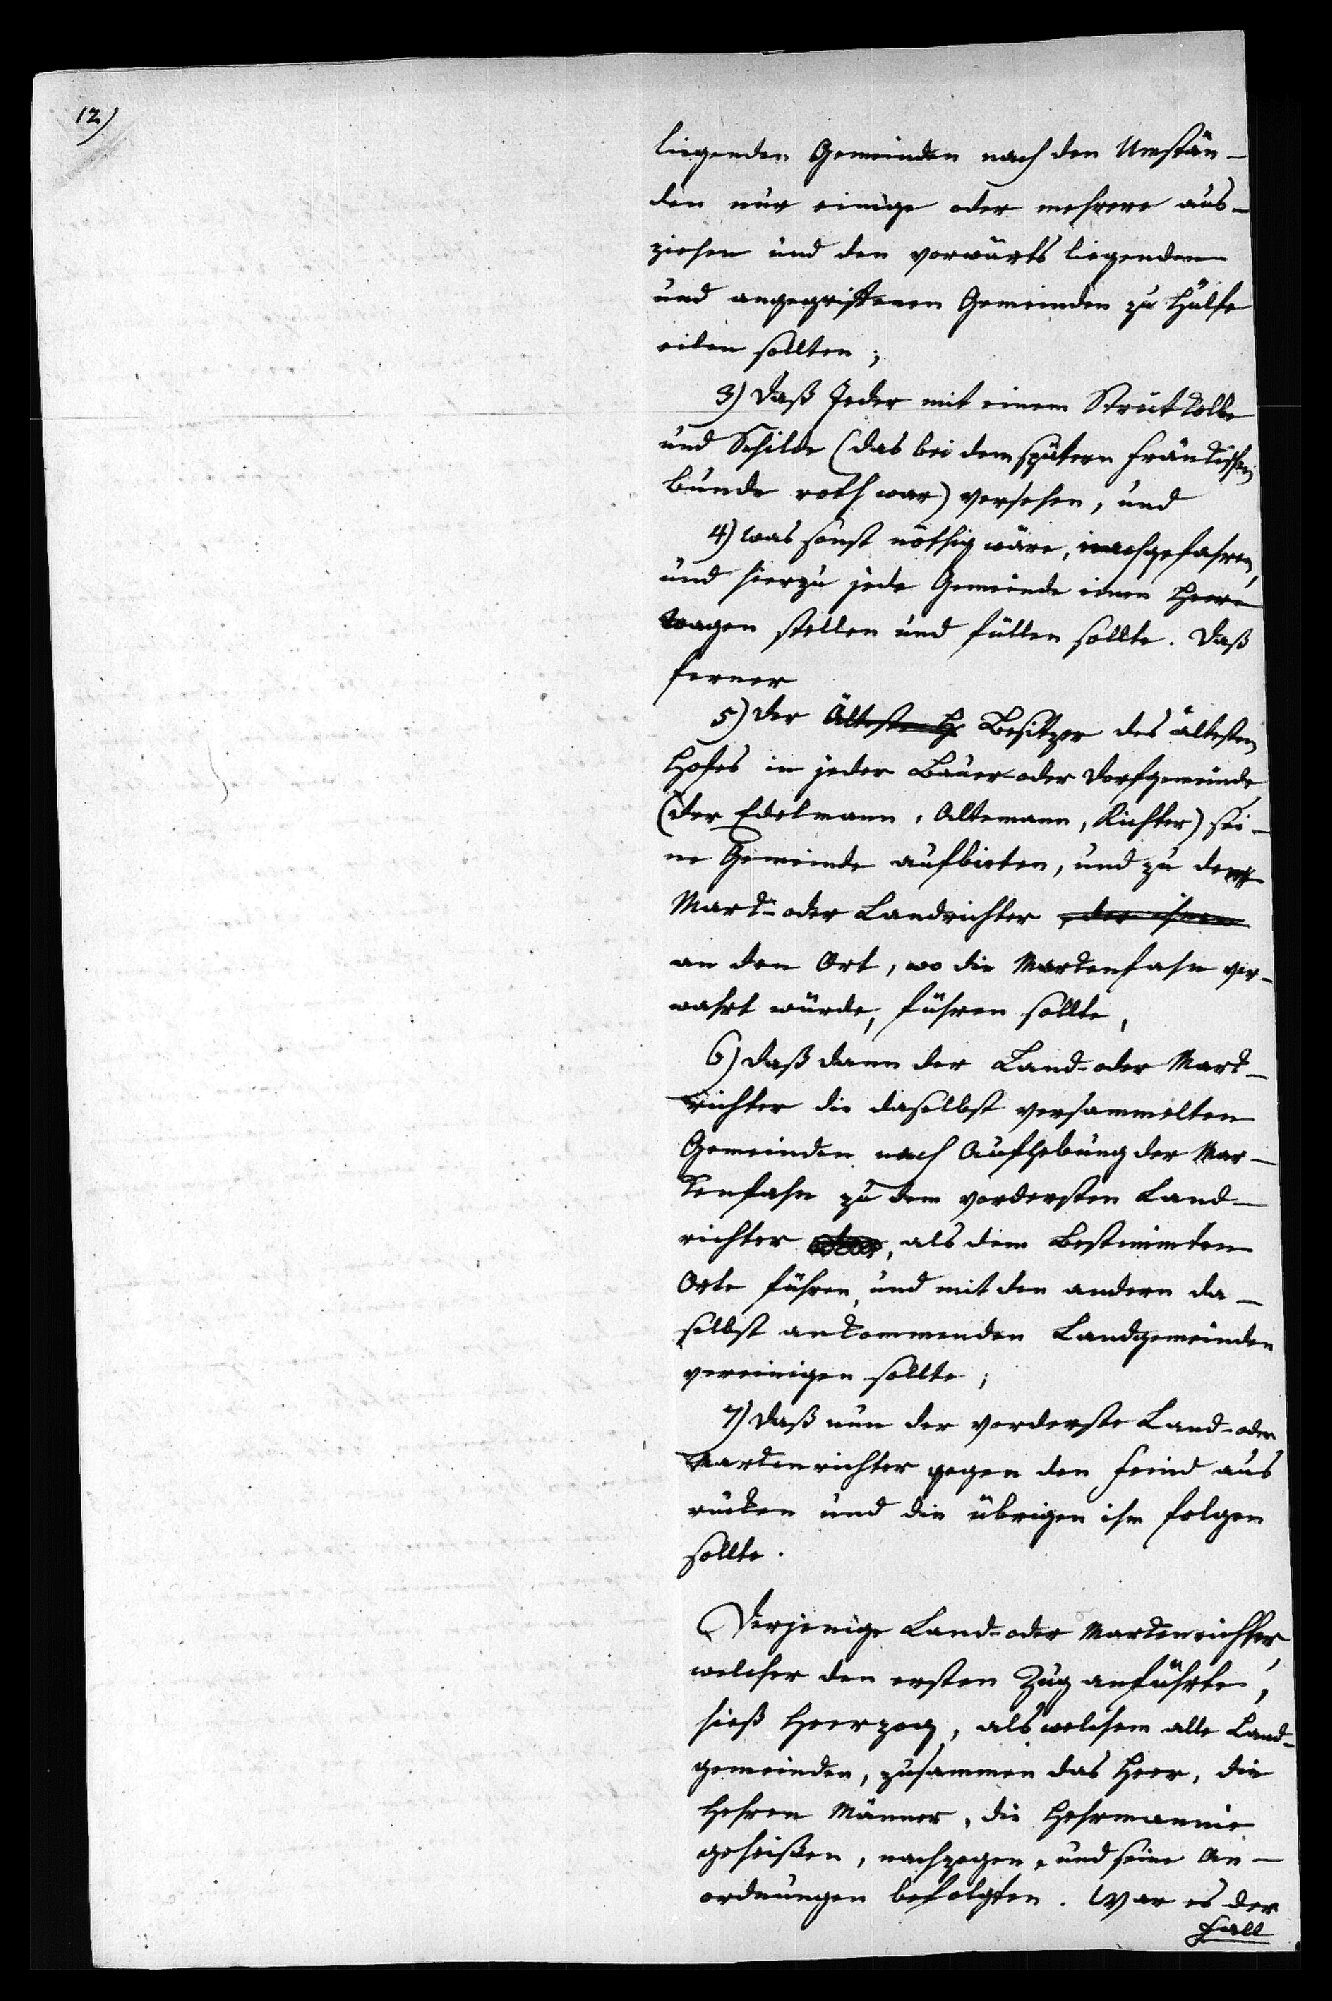 12)
liegenden Gemeinden nach den Umstän-
den nur einige oder mehrere aus-
ziehen und den vorwärts liegenden
und angegriffenen Gemeinden zu Hülfe
eilen sollten;
3) Daß Jeder mit einem Streitkolbe
und Schilde (das bei dem spätern Fränkischen
bunde roth war) versehen, und
4) was sonst nöthig wäre, nachgefahren,
und hierzu jede Gemeinde einen Heer
wagen stellen und füllen sollte. Daß
ferner
5) der Älteste H Besitzer des ältesten
Hofes in jeder Bauer oder Dorfgemeinde
(der Edelmann, Altemann, Richter) sei-
ne Gemeinde aufbieten, und zu dem
Mark- oder Landrichter der ihren
an den Ort, wo die Markenfahn ver-
wahrt würde, führen sollte,
6) daß dann der Land- oder Mark-
richter die daselbst versammelten
Gemeinden nach Aufhebung der Mar-
kenfahn zu dem vordersten Land-
richter, als dem bestimmten
Orte führen, und mit den andern da-
selbst ankommenden Landgemeinden
vereinigen sollte;
7) Daß nun der vorderste Land- oder
Markenrichter gegen den Feind aus
rücken und die übrigen ihm folgen
sollte.
Derjenige Land- oder Markenrichter,
welcher den ersten Zug anführte,
hieß Heerzog, als welchem alle Land-
gemeinden, zusammen das Heer, die
Hehren Männer, die Hehrmannie
geheißen, nachzogen, und seine An-
ordnungen befolgten. War es der
Fall